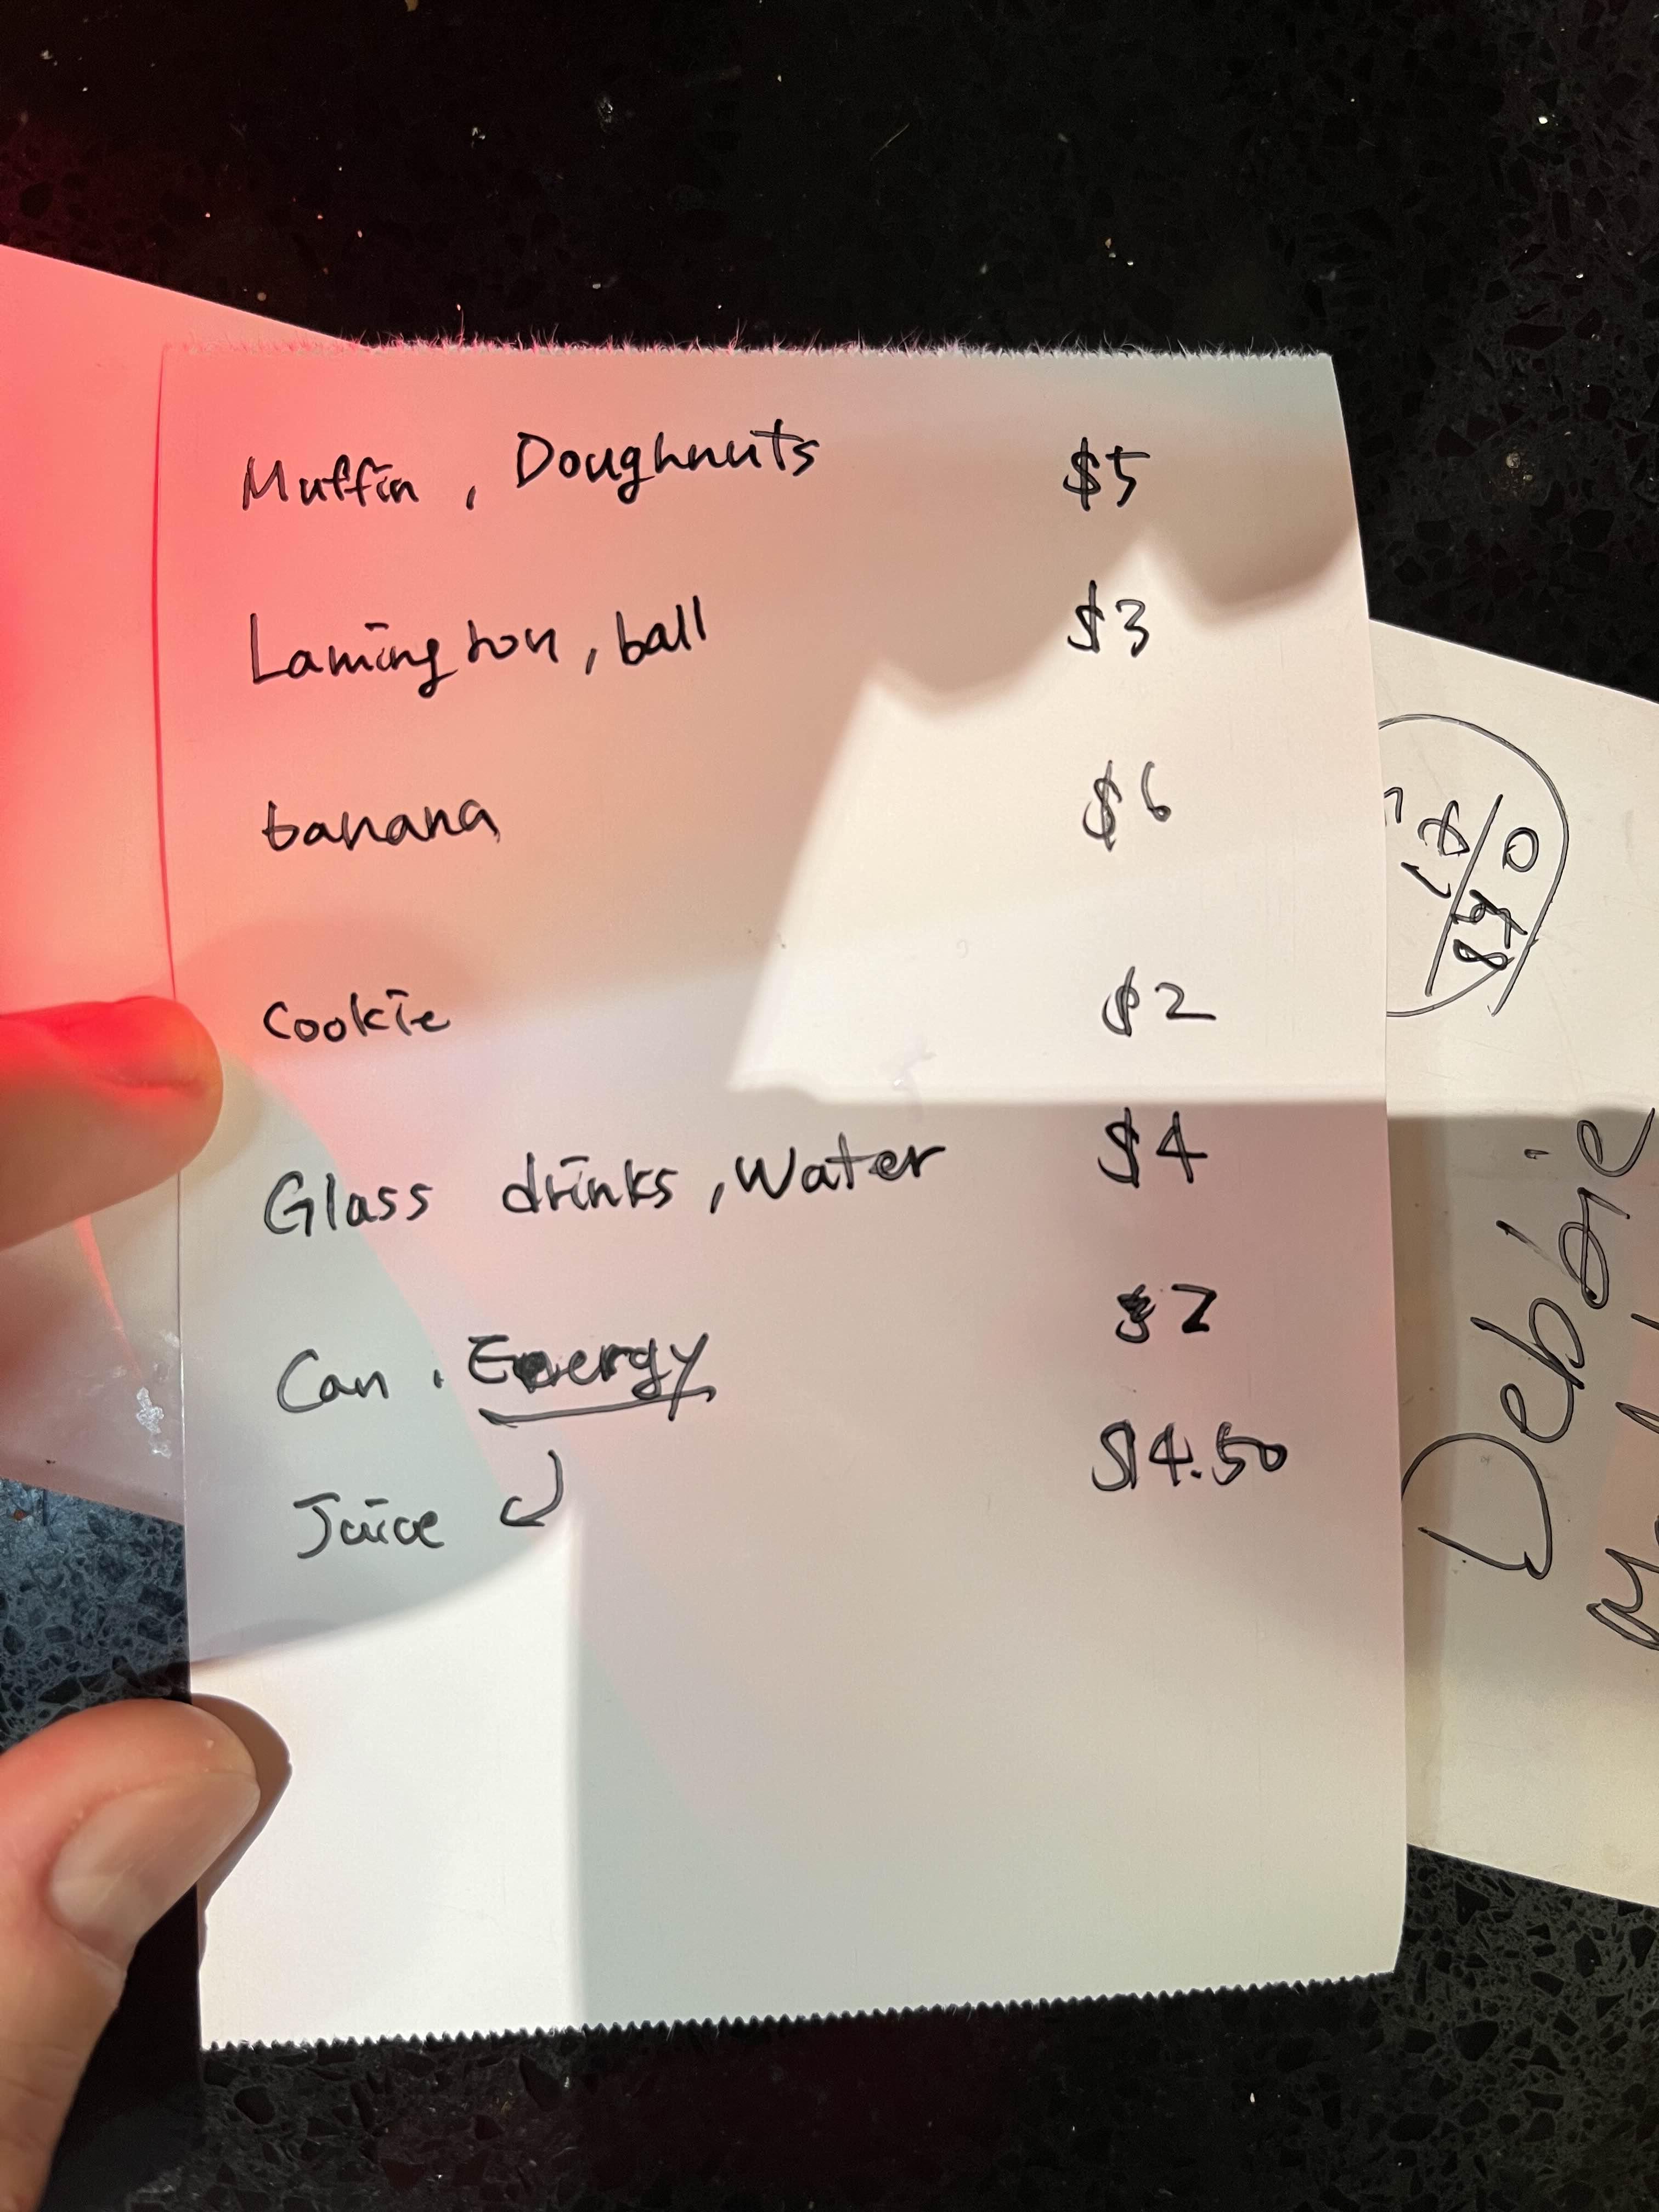 Muffin, Doughnuts $5
Lamington, ball $3
banana $6
Cookie $2
Glass drinks, Water $4
Can. Energy $2
Juice $4.50
Debbie